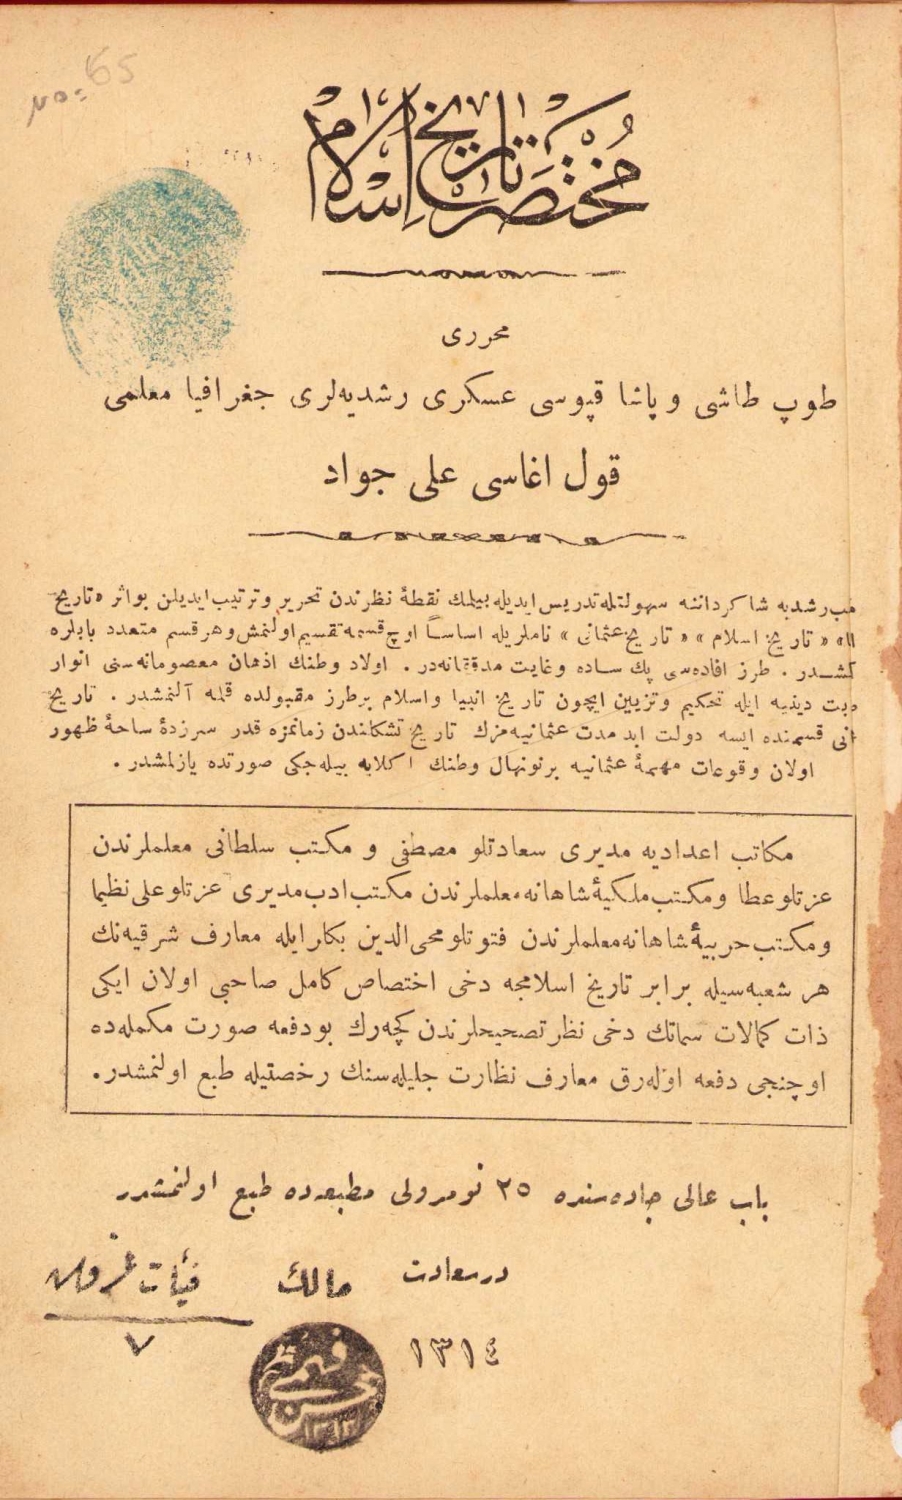 No: 65
مُختصر تاريخ اسلام
محررى
طوپ طاشى و پاشا قپوسى عسكرى رشديه‌لرى جغرافيا معلمى
قول اغاسى على جواد
رشديه شاكرداننه سهولتله تدريس ايديله بيلمك نقطۀ نظرندن تحرير وترتيب ايديلن بواثر «تاريخ
« تاريخ اسلام » « تاريخ عثمانى » ناملريله اساساً اوچ قسمه تقسيم اولنمش وهر قسم متعدد بابلره
. طرز افاده‌سى پك ساده وغايت مدققانه‌در . اولاد وطنك اذهان معصومانه‌سنى انوار
دينيه ايله تحكيم وتزيين ايچون تاريخ انبيا واسلام برطرز مقبولده قلمه آلنمشدر . تاريخ
قسمنده ايسه دولت ابد مدت عثمانيه‌مزك تاريخ تشكلندن زمانمزه قدر سرزدۀ ساحۀ ظهور
اولان وقوعات مهمۀ عثمانيه برنونهال وطنك اكلايه بيله‌جكى صورتده يازلمشدر .
مكاتب اعداديه مديرى سعادتلو مصطفى و مكتب سلطانى معلملرندن
عزتلو عطا ومكتب ملكيۀ شاهانه معلملرندن مكتب ادب مديرى عزتلو على نظيما
ومكتب حربيۀ شاهانه معلملرندن فتوتلو محى‌الدين بكلر ايله معارف شرقيه‌نك
هر شعبه‌سيله برابر تاريخ اسلامجه دخى اختصاص كامل صاحبى اولان ايكى
ذات كمالات سماتك دخى نظر تصحيحلرندن كچه‌رك بودفعه صورت مكمله‌ده
اوچنجى دفعه اوله‌رق معارف نظارت جليله‌سنك رخصتيله طبع اولنمشدر.
باب عالى جاده‌سنده ٢٥ نومرولى مطبعه‌ده طبع اولنمشدر
درسعادت
مالك
فيأت غروش
١٣١٤
٧
حسن فهمى